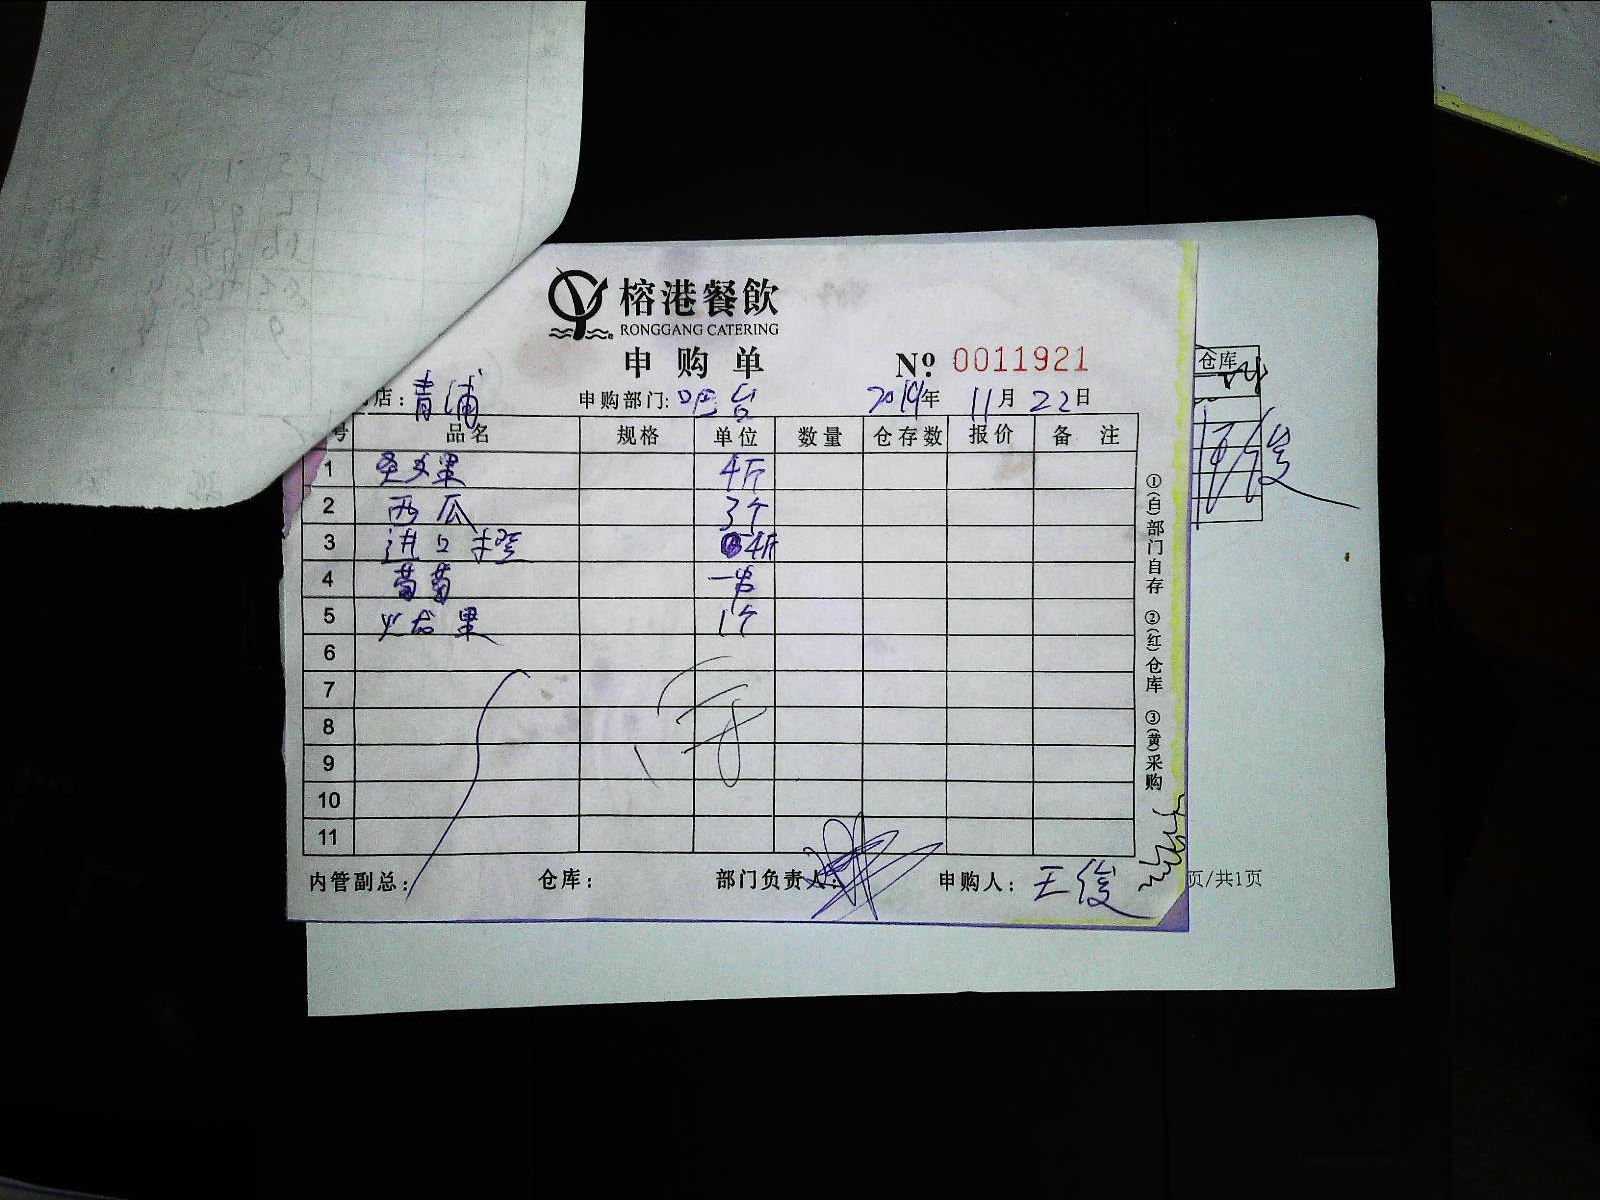 榕港餐飲
RONGGANG CATERING
申购单 № 0011921
店：青浦 申购部门:吧台 2019年 11月 22日
号 品名 规格 单位 数量 仓存数 报价 备注
1 圣女果 4斤
2 西瓜 3个
3 进口半橙 4斤
4 葡萄 一串
5 火龙果 1个
6
7
8
9
10
11
内管副总： 仓库： 部门负责人： 申购人：王俊
①(白)部门自存 ②(红)仓库 ③(黄)采购
仓库
页/共1页